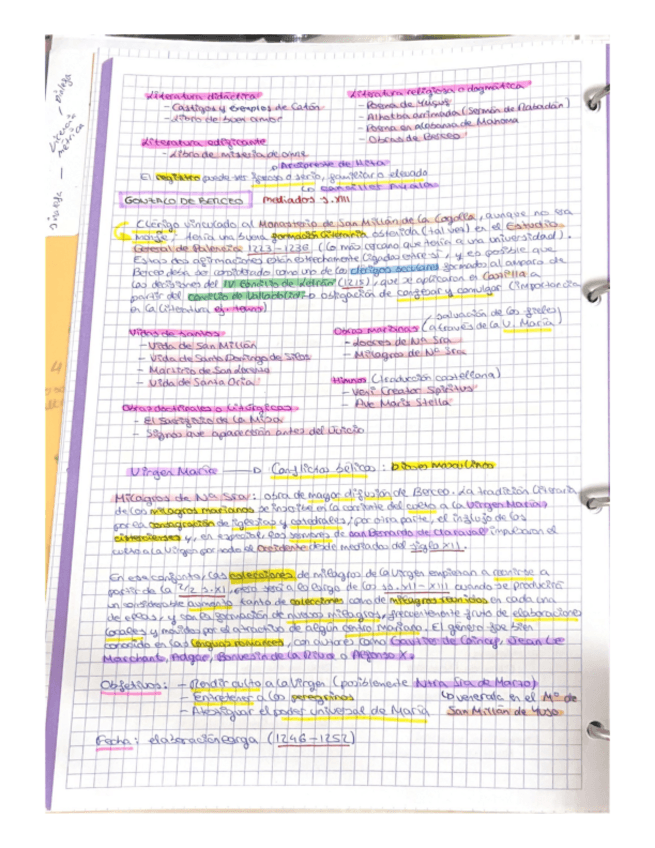 Literatura didáctica
- Castigos y exemplos de Catón
- Libro de buen amor
Literatura religiosa o dogmática
- Poema de Yuçuf
- Alhotba arrimada (Sermón de Rabadán)
- Poema en alabanza de Mahoma
- Obras de Berceo
Literatura edificante
- Libro de miseria de omne
Arcipreste de Hita
El registro puede ser jocoso o serio, familiar o elevado
GONZALO DE BERCEO mediados s. XIII
Clérigo vinculado al Monasterio de San Millán de la Cogolla, aunque no era
monje, tenía una buena formación literaria obtenida (tal vez) en el Estudio
General de Palencia 1213-1236 (lo más cercano que tenía a una universidad).
Estas dos afirmaciones están estrechamente ligadas entre sí, y es posible que
Berceo deba ser considerado como uno de los clérigos seculares formado al amparo de
las decisiones del IV concilio de Letrán (1215), que se aplicaron en Castilla a
partir del concilio de Valladolid → obligación de confesar y comulgar (importancia
en la literatura)
Vidas de santos
- Vida de San Millán
- Vida de Santo Domingo de Silos
- Martirio de San Lorenzo
- Vida de Santa Oria
Obras marianas (salvación de los fieles
a través de la V. María)
- Loores de Nª Sra
- Milagros de Nª Sra
Himnos (traducción castellana)
- Veni Creator Spiritus
- Ave Maris Stella
Obras doctrinales o litúrgicas
- El Sacrificio de la Misa
- Signos que aparecerán antes del Juicio
Virgen María → Conflictos bélicos: Dioses masculinos
Milagros de Nª Sra: obra de mayor difusión de Berceo. La tradición literaria
de los milagros marianos se inscribe en la corriente del culto a la Virgen María
por la consagración de iglesias y catedrales, por otra parte, el influjo de los
cistercienses y, en especial, los sermones de san Bernardo de Claraval impulsaron el
culto a la Virgen por todo el Occidente desde mediados del siglo XII.
En ese conjunto, las colecciones de milagros de la Virgen empiezan a reunirse a
partir de la 2/2 s. XI, pero será a lo largo de los ss. XII-XIII cuando se produzca
un considerable aumento tanto de colecciones como de milagros reunidos en cada una
de ellas, y con la formación de nuevos milagros, frecuentemente fruto de elaboraciones
locales y movidas por el atractivo de algún centro mariano. El género fue bien
conocido en las lenguas romances, con autores como Gautier de Coincy, Jean Le
Marchant, Adgar, Bonvesin de la Riva o Alfonso X.
Objetivos: - Rendir culto a la Virgen (posiblemente Ntra Sra de Marzo)
- Entretener a los peregrinos
venerada en el Mº de
- Atestiguar el poder universal de María
San Millán de Yuso
Fecha: elaboración larga (1246-1252)